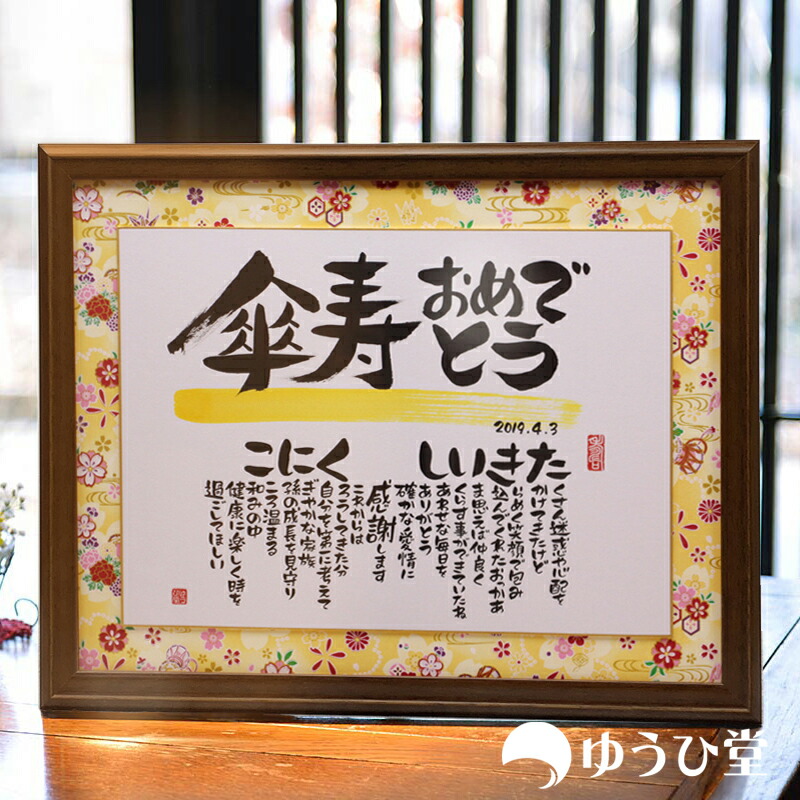 傘寿 おめで
とう
2019.4.3
たきいし
くさん迷惑や心配を
かけてきたけど
らめく笑顔で包み
込んでくれたおかあ
ま思えば仲良く
くらす事ができていたね
あわせな毎日を
ありがとう
確かな愛情に
感謝します
くにこ
これからは
ろうしてきた分
自分を第一に考えて
ぎやかな家族
孫の成長を見守り
ころ温まる
和みの
健康に楽しく時を
過ごしてほしい
ゆうひ堂